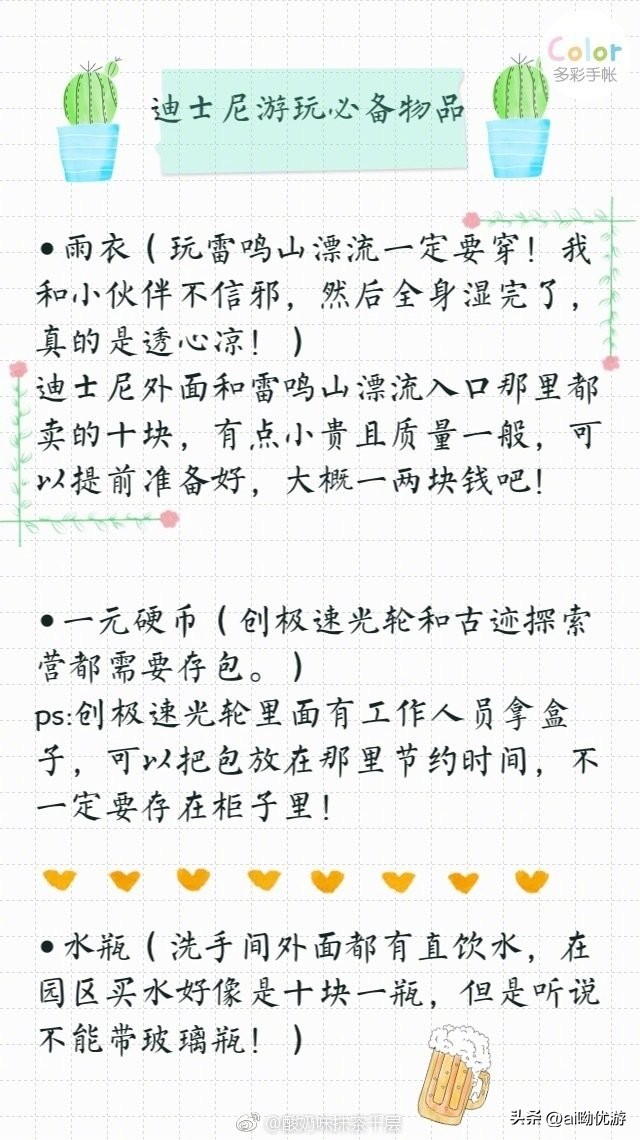 Color
多彩手帐
迪士尼游玩必备物品
•雨衣（玩雷鸣山漂流一定要穿！我
和小伙伴不信邪，然后全身湿完了，
真的是透心凉！）
迪士尼外面和雷鸣山漂流入口那里都
卖的十块，有点小贵且质量一般，可
以提前准备好，大概一两块钱吧！
•一元硬币（创极速光轮和古迹探索
营都需要存包。）
ps:创极速光轮里面有工作人员拿盒
子，可以把包放在那里节约时间，不
一定要存在柜子里！
•水瓶（洗手间外面都有直饮水，在
园区买水好像是十块一瓶，但是听说
不能带玻璃瓶！）
@酸奶味抹茶千层
头条 @ai呦优游